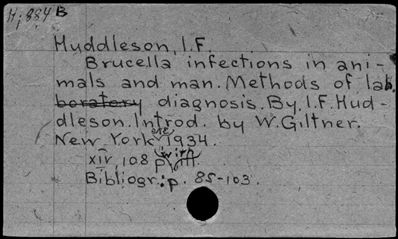 H; 884 B
Huddleson, I.F.
Brucella infections in ani-
mals and man. Methods of lab.
boratory diagnosis. By I.F. Hud-
dleson. Introd. by W. Giltner.
New York, 1934.
xiv, 108 p.
Bibliogr.: p. 85-103.